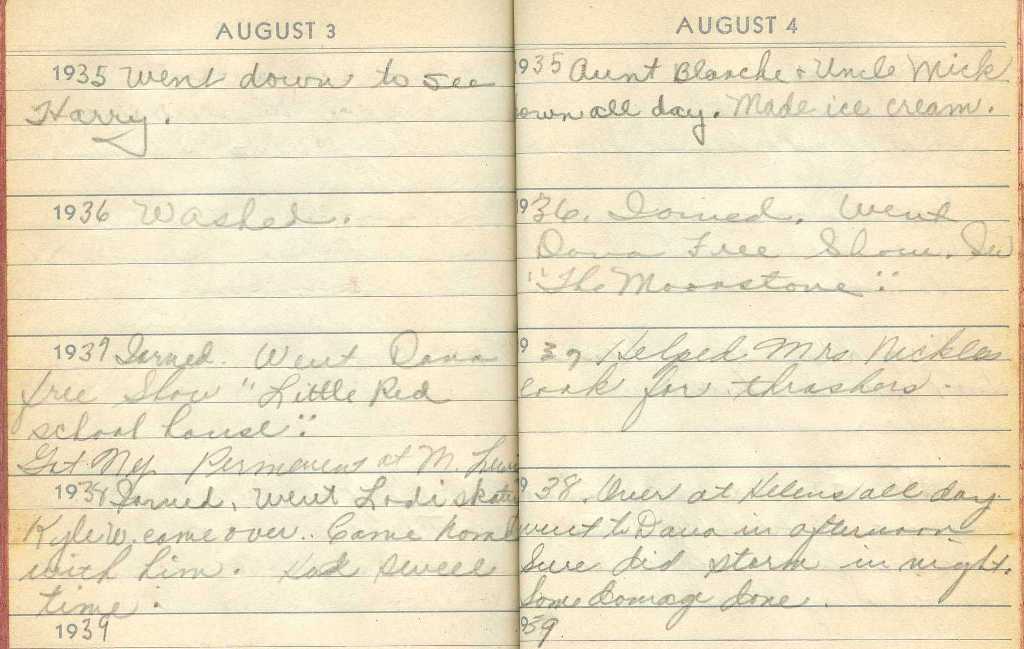 AUGUST 3
1935 Went down to see
Harry.
1936 Washed.
1937 Ironed. Went Dana
free Show "Little Red
school house".
Got My Permanent at M. Lewis
1938 Ironed. Went Lodi skating
Kyle W. came over.. Came home
with him. Had sweet
time.
1939
AUGUST 4
1935 Aunt Blanche & Uncle Mick
down all day. Made ice cream.
936. Ironed. Went
Dana Free Show. Saw
"The Moonstone".
9 37 Helped Mrs. Nickles
cook for thrashers.
9 38. Over at Helens all day
went to Dana in afternoon
Sure did storm in night.
Some Damage done.
959